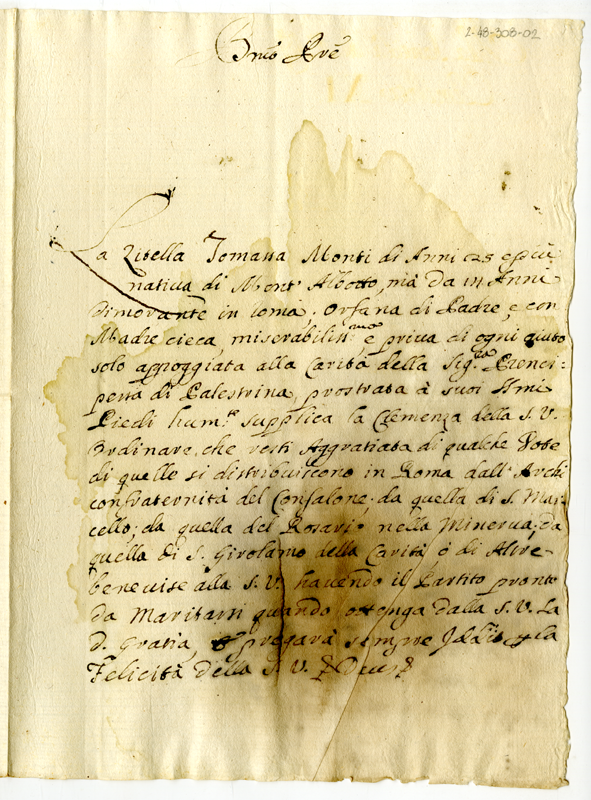 2-48-308-02
Bmo Pre
La Zitella Tomassa Monti di Anni 25 e più
nativa di Mont' Albotto, mà da in Anni
dimorante in Roma, Orfana di Padre, e con
Madre cieca miserabilissma e priva di ogni aiuto
solo appoggiata alla Carità della Sigra Prenci-
pessa di Palestrina, prostrata à suoi Smi
Piedi humte supplica la Clemenza della S. V.
Ordinare, che resti Aggratiata di qualche Dote
di quelle si distribuiscono in Roma dall' Archi
confraternità del Confalone; da quella di S. Mar-
cello; da quella del Rosario nella Minerva; da
quella di S. Girolamo della Carità ò di Altre
benevise alla S. V. havendo il Partito pronto
da Maritarsi quando ottenga dalla S. V. La
d. Gratia, e pregarà sempre Iddio p la
Felicità della S. V. Deus